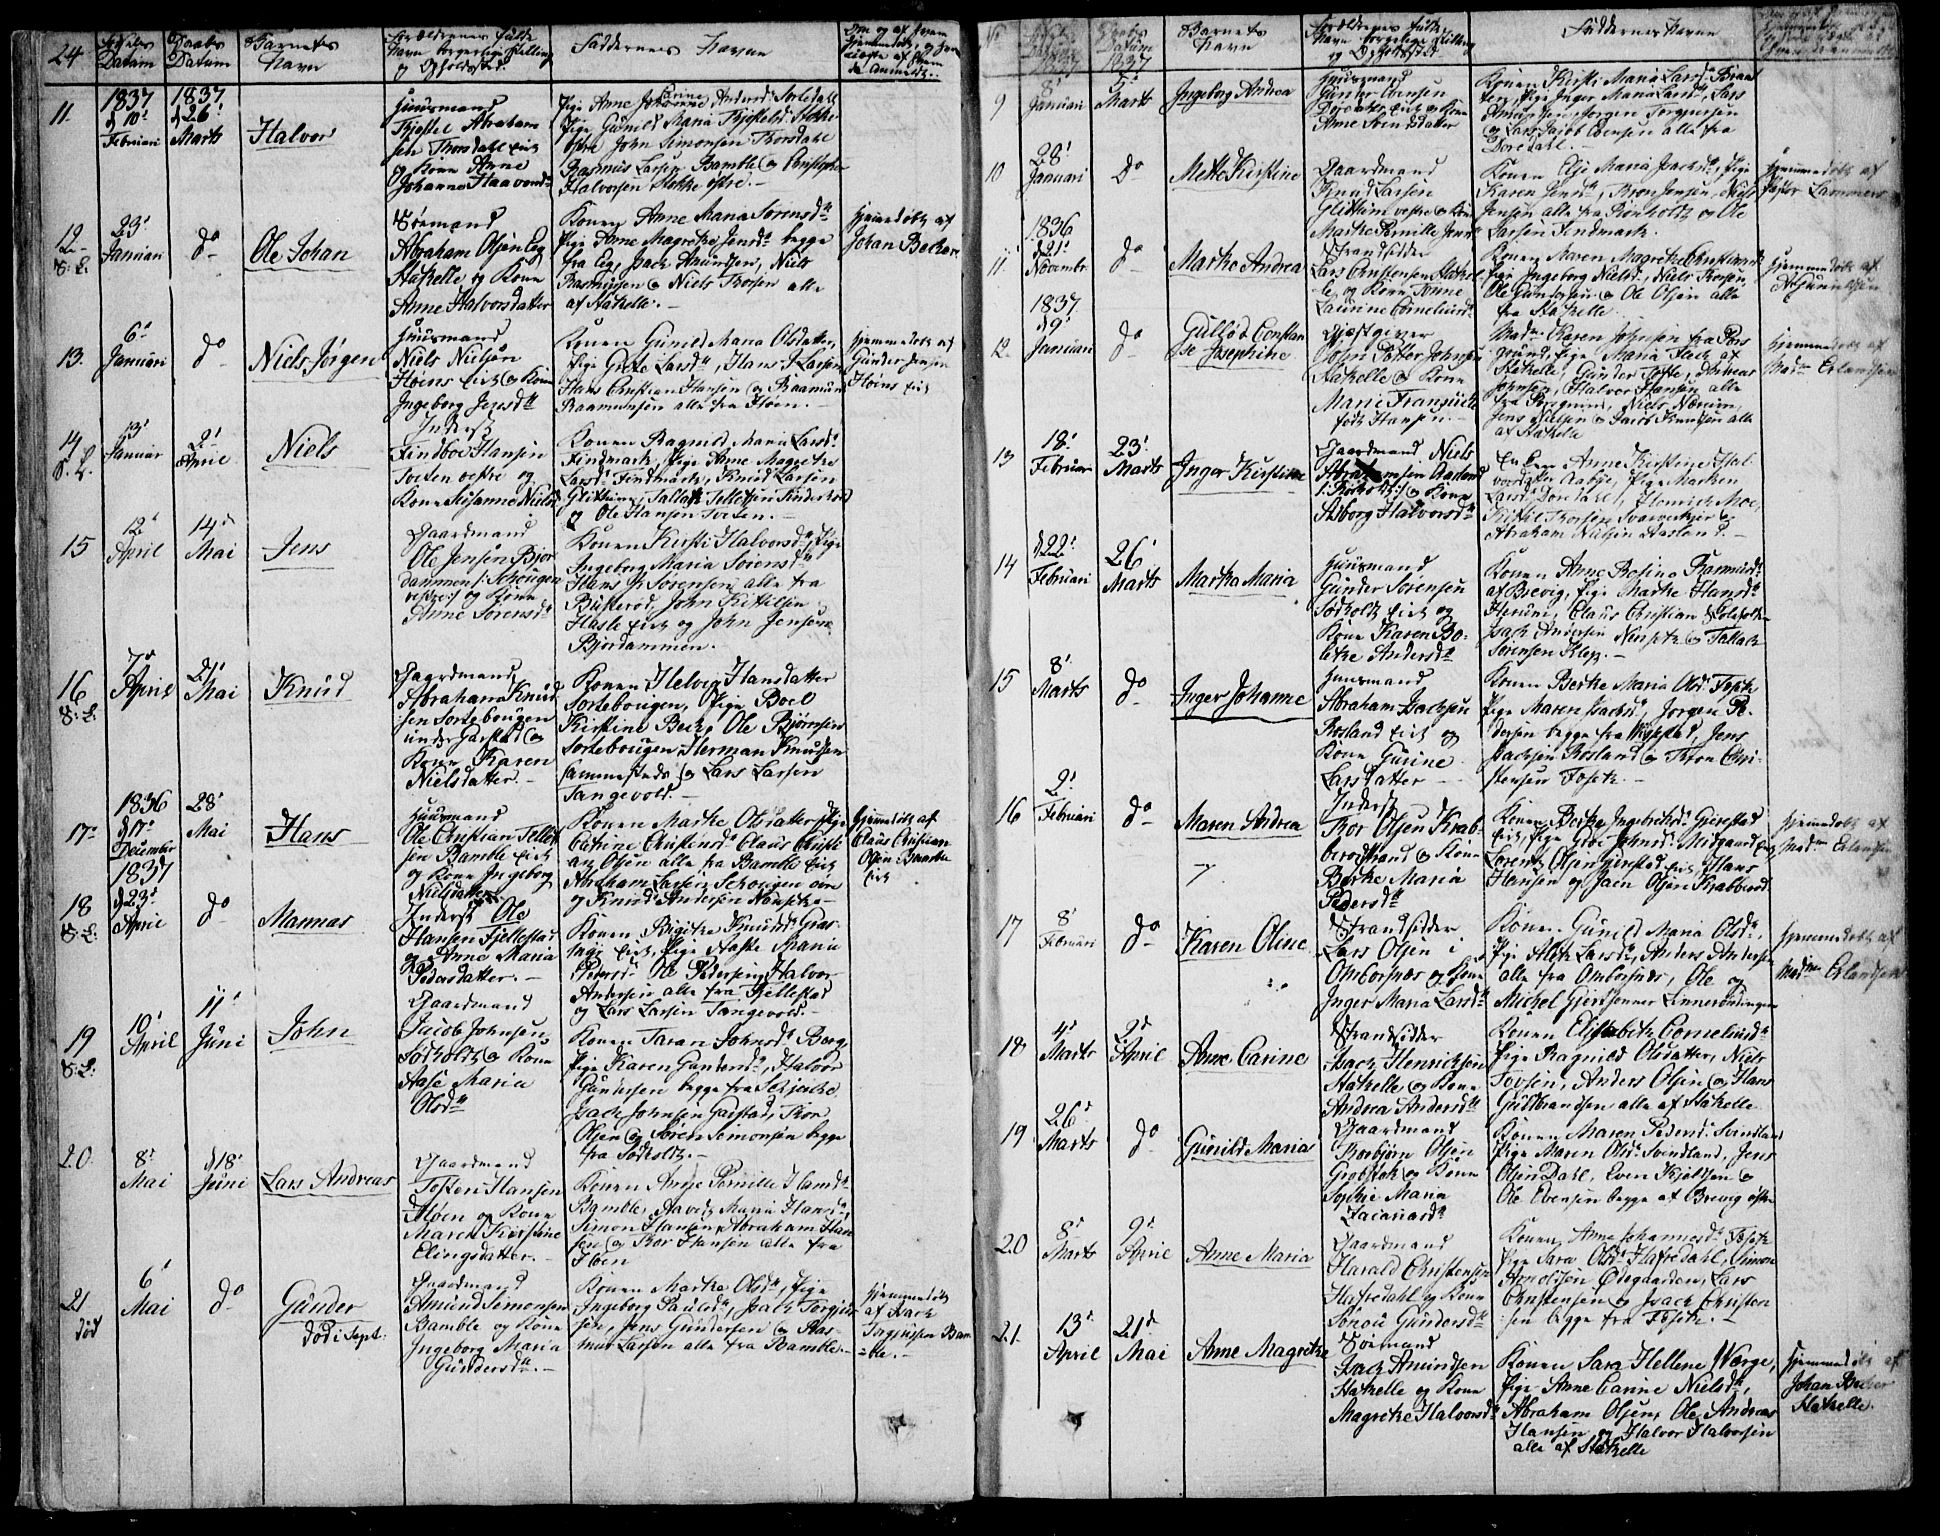 24
Fødsels Datum
Daabs Datum
Barnets Navn
Forældrenes fulde Navn borgerlige Stilling og Opholdssted.
Faddernes Navne
11.
1837
d 10'
Februari
1837
d 26'
Marts
Halvor
Huusmand
Kjøstel Abraham
sen Trosdahl Eiet
og Kone Anne
Johanne Haavordsd
Pige Anne Andersd: Sørledahl
Pige Gunild Maria Kjøstelsd: Stokke
østre John Simonsen Trosdahl
Rasmus Larsen Bamble og Christopher
Halvorsen Stokke østre.
12
23'
Januari
do
Ole Johan
Sømand
Abraham Olsen Eeg
Stathelle og Kone
Anne Halvorsdatter
Konen Anne Maria Sørensdr
Pige Anne Magrethe Jensdr begge
fra Eeg, Isach Amundsen, Niels
Rasmussen og Niels Thorsen alle
af Stathelle.
hjemmedøbt af
Johan Becker
13.
6'
Januari
do
Niels Jørgen
Huusmand
Niels Nielsen
Hoins Eiet og Kone
Ingeborg Jensdr
Konen Gunild Maria Olsdatter,
Pige Grete Larsdr, Hans J Larsen
Hans Christian Hansen og Raamund
Raamunsen alle fra Høen.
hjemmedøbt af
Gunder Jensen
Hoins Eiet
14
13'
Januar
2'
April
Niels
Inderst
Findboe Hansen
Tveten vestre og
Kone Susanne Nielsd
Konen Ragnild Maria Larsd:
Findmark, Pige Anne Magrethe
Larsd: Findmark, Knud Larsen
Glittum, Tallak Tellefsen Finderhold
og Ole Hansen Tveten.
15
12'
April
14'
Mai
Jens
Gaardmand
Ole Jensen Bjor
dammen /: Schougen
vestre :/ og Kone
Anne Sørensdr
Konen Kirsti Halvorsdr, Pige
Ingeborg Maria Sørensdr
Hans J. Sørensen, alle fra
Busterød, John Kittilsen
Hasle Eiet og John Jensen
Bjordammen.
16
7'
April
21'
Mai
Knud
Gaardmand
Abraham Knud
sen Sortebougen
under Garstad og
Kone Karen
Nielsdatter.
Konen Helvig Hansdatter
Sortebougen, Pige Boel
Kirstine Beck, Ole Bjørnsen
Sortebougen, Herman Knudsen
sammesteds og Lars Larsen
Tangevold.
17
1836
d 17'
December
28'
Mai
Hans
Huusmand
Ole Christian Tellef
sen Bamble Eiet
og Kone Ingeborg
Nielsdatter
Konen Marthe Olsdatter Pige
Catrine Christensd: Claus Christi
an Olsen alle fra Bamble Eiet
Abraham Larsen Schougen øvre
og Knud Andersen Nensethe
hjemmedøbt af
Claus Christian
Olsen Bamble
Eiet
18
1837
d 23'
April
do
Mannas
Inderst Ole
Hansen Fjellestad
og Anne Maria
Pedersdatter.
Konen Birgithe Knudsd: Gras
hage Eiet, Pige Aaste Maria
Pedersd: Ole Pedersen, Halvor
Andersen alle fra Fjellestad
og Lars Larsen Tangevold.
19
10'
April
11'
Juni
John
Gaardmand
Jacob Johnsen
Sødholdt og Kone
Aase Maria
Olsdr
Konen Taran Johnsd: Berg
Pige Karen Gundersd:, Halvor
Gundersen begge fra Skjerke
Isach Johnsen Garstad, Thor
Olsen og Søren Simonsen begge
fra Sødholdt.
20
8'
Mai
d 18'
Juni
Lars Andreas
Gaardmand
Tosten Hansen
Høen og Kone
Maren Kirstine
Elingsdatter.
Konen Anne Pernille Hansdr
Bamble, Aavet Maria Hansdr,
Simon Hansen, Abraham Han
sen og Thor Hansen alle fra
Høen
21
død
6'
Mai
do
Gunder
død i Sept:
Gaardmand
Amund Simonsen
Bamble og Kone
Ingeborg Maria
Gundersdr.
Konen Marthe Olsdr, Pige
Ingeborg Paulsdr, Isach Torgius
sen, Jens Gundersen og Ras
mus Larsen alle fra Bamble.
hjemmedøbt
af Isach
Torgiussen Bam
ble.
Barnets Navn
Forældrenes fulde Navn borgerlige Stilling og Opholdssted
Faddernes Navne
9
8'
Januari
5'
Marts
Ingeborg Andrea
Huusmand
Gunder Evensen
Dørdahls Eiet og Kone
Anne Svendsdatter
Konen Kirsti Maria Larsd: Braat
ten, Pige Inger Maria Larsd:, Lars
Amundsen, Jørgen Torgersen
og Lars Jacob Evensen alle fra
Dørdahl.
10
28'
Januari
do
Mette Kirstine
Gaardmand
Knud Larsen
Glittum vestre og Kone
Marthe Pernille Jensd
Konen Else Maria Isachsd:, Pige
Karen Jensd:, Bjørn Jensen, Niels
Jensen alle fra Rønholdt og Ole
Larsen Findmark.
hjemmedøbt af
Pastor Lammers
11.
1836
d 21'
Novembr
do
Marthe Andrea
Strandsidder
Lars Christensen Stathel
le og Kone Tonne
Laurine Corneliusd:
Konen Maren Magrethe Christiansd:
Pige Ingeborg Nielsd:, Niels Thorsen,
Ole Gundersen og Ole Olsen alle
fra Stathelle.
hjemmedøbt af
12.
1837
d 9'
Januari
do
Gulløv Constan
se Josephine
Gjestgiver
John Petter Johnsen
Stathelle og Kone
Marie Fransiette
født Hansen.
Madm Karen Johnsen fra Pors
grund, Pige Maria Flech af
Stathelle, Gunder Tofte, Andreas
Johnsen, Halvor Hansen alle
fra Porsgrund, Niels Narum,
Jens Nielsen og Jacob Knudsen alle
af Stathelle
hjemmedøbt af
Madm Erlandsen
13
18'
Februar
23'
Marts
Inger Kirstine
Gaardmand Niels
Abrahamsen Aasland
og Kone
Asborg Halvorsdr
Enken Anne Kirstine Hal
vorsdatter Aabye, Pige Marthen
Larsd: Dørdahl, Henrich Moe,
Kittil Thorsen Svarverkjer og
Abraham Nielsen Aasland.
14
d 22'
Februari
26'
Marts
Martha Maria
Huusmand
Gunder Sørensen
Sødholdt Eiet og
Kone Karen Bo
lethe Andersdr
Konen Anne Rosine Rasmusd:
af Brevig, Pige Marthe Hansd:
Herum, Claus Christian
Isach Andersen Nenseth og Tallak
Sørensen Klep.
15
8'
Marts
do
Inger Johanne
Huusmand
Abraham Isachsen
Rosland Eiet og
Kone Gurine
Larsdatter
Konen Berthe Maria Olsd: Foseth
Pige Maren Isachsd:, Jørgen Pe
dersen begge fra Vissestad, Jens
Isachsen Rosland og Thron Chri
stensen Foseth.
16
2'
Februari
do
Maren Andrea
Inderst
Thor Olsen Krab
berødstrand og Kone
Berthe Maria
Pedersdr
Konen Berthe Ingebrethsd: Gjerestad
Eiet, Pige Groe Johnsd: Midgaard Eiet,
Lorents Olsen Gjerstad Eiet, Hans
Hansen og Joen Olsen Krabberød.
hjemmedøbt af
Madm Erlandsen
17
8'
Februari
do
Karen Oline
Strandsidder
Lars Olsen i
Omborsnes og Kone
Inger Maria Larsdr
Konen Gunild Maria Olsdr,
Pige Aleth Larsdr, Anders Andersen
alle fra Ombersnes, Ole og
Michel Gjertsønner Linnerødningen
hjemmedøbt af
Madme Erlandsen
18
4'
Marts
2'
April
Anne Carine
Strandsidder
Isach Henrichsen
Stathelle og Kone
Andrea Andersdr
Konen Elisabeth Corneliusdr
Pige Ragnild Olsdatter, Niels
Tovsen, Anders Olsen og Hans
Guldbrandsen alle af Stathelle
19
26'
Marts
do
Gunild Maria
Gaardmand
Thorbjørn Olsen
Grobstok og Kone
Sophie Maria
Zacariasdr
Konen Maren Pedersd: Svindland
Pige Maren Olsd: Svindland, Jens
Olsen Dahl, Even Kjeldsen og
Ole Evensen begge af Brevig østre
20
8'
Marts
9'
April
Anne Maria
Gaardmand
Harald Christensen
Hafredahl og Kone
Gundersdr
Konen Anne Johannesdr Foseth
Pige Sara Olsdr Hafredahl, Simon
Arnoldsen Ødegaarden, Lars
Christensen og Isach Christen
sen begge fra Foseth.
21.
13'
April
21'
Mai
Anne Magrethe
Sømand
Isach Amundsen
Stathelle og Kone
Magrethe Halvorsdr
Konen Sara Hellene Werge,
Pige Anne Carine Nielsdr,
Abraham Olsen, Ole Andreas
Hansen og Halvor Halvorsen
alle af Stathelle
hjemmedøbt af
Johan Becker
Stathelle.